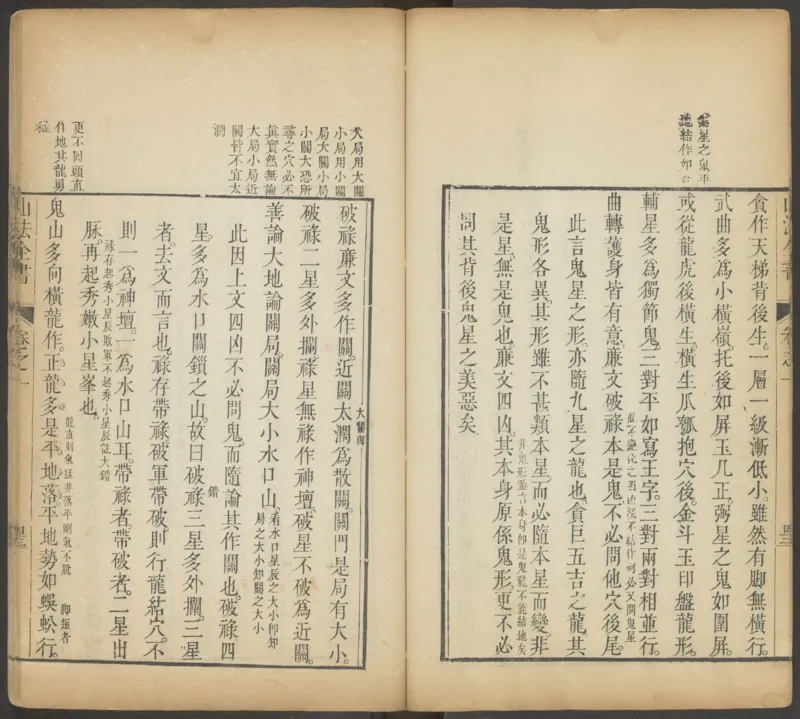 鬼星之鬼平
地結作如
貪作天梯背後生。一層一級漸低小。雖然有脚無橫行。
武曲多爲小橫嶺。托後如屏玉几正。弼星之鬼如圍屏。
或從龍虎後橫生。橫生瓜瓠抱穴後。金斗玉印盤龍形。
輔星多爲獨節鬼。三對平如寫王字。三對兩對相並行。
曲轉護身皆有意。廉文破祿本是鬼。不必問他穴後尾。
此言鬼星之形。亦隨九星之龍也。貪巨五吉之龍其
鬼形各異。其形雖不甚類本星。而必隨本星而變。非
非鬼形雖言本身卽是鬼龍不能結地矣
是星。無是鬼也。廉文四凶。其本身原係鬼形。更不必
問其背後鬼星之美惡矣
大局用大關
小局用小關
局大關小局
小關大恐所
尋之穴必不
眞實然無論
大局小局近
關皆不宜太
濶
破祿廉文多作關。近關太濶爲散關。關門是局有大小。
破祿二星多外攔。祿星無祿作神壇。破星不破爲近關。
善論大地論關局。關局大小水口山。
看水口星辰之大小卽知
局之大小知關之大小
此因上文四凶不必問鬼。而隨論其作關也。破祿四
星。多爲水口關鎖之山。故曰破祿三星多外攔。三星
者。去文而言也。祿存帶祿。破軍帶破。則行龍結穴。不
則一爲神壇。一爲水口山耳。帶祿者。帶破者。二星出
祿存起秀小星辰破軍不起秀小星辰註大錯
脉。再起秀嫩小星峯也。
鬼山多向橫龍作。正龍多是平地落。平地勢如蜈蚣行。
龍直則氣猛非落平剛氣不脫
脚短者
更不回頭直
作地其龍勇
猛
山法全書
卷之一